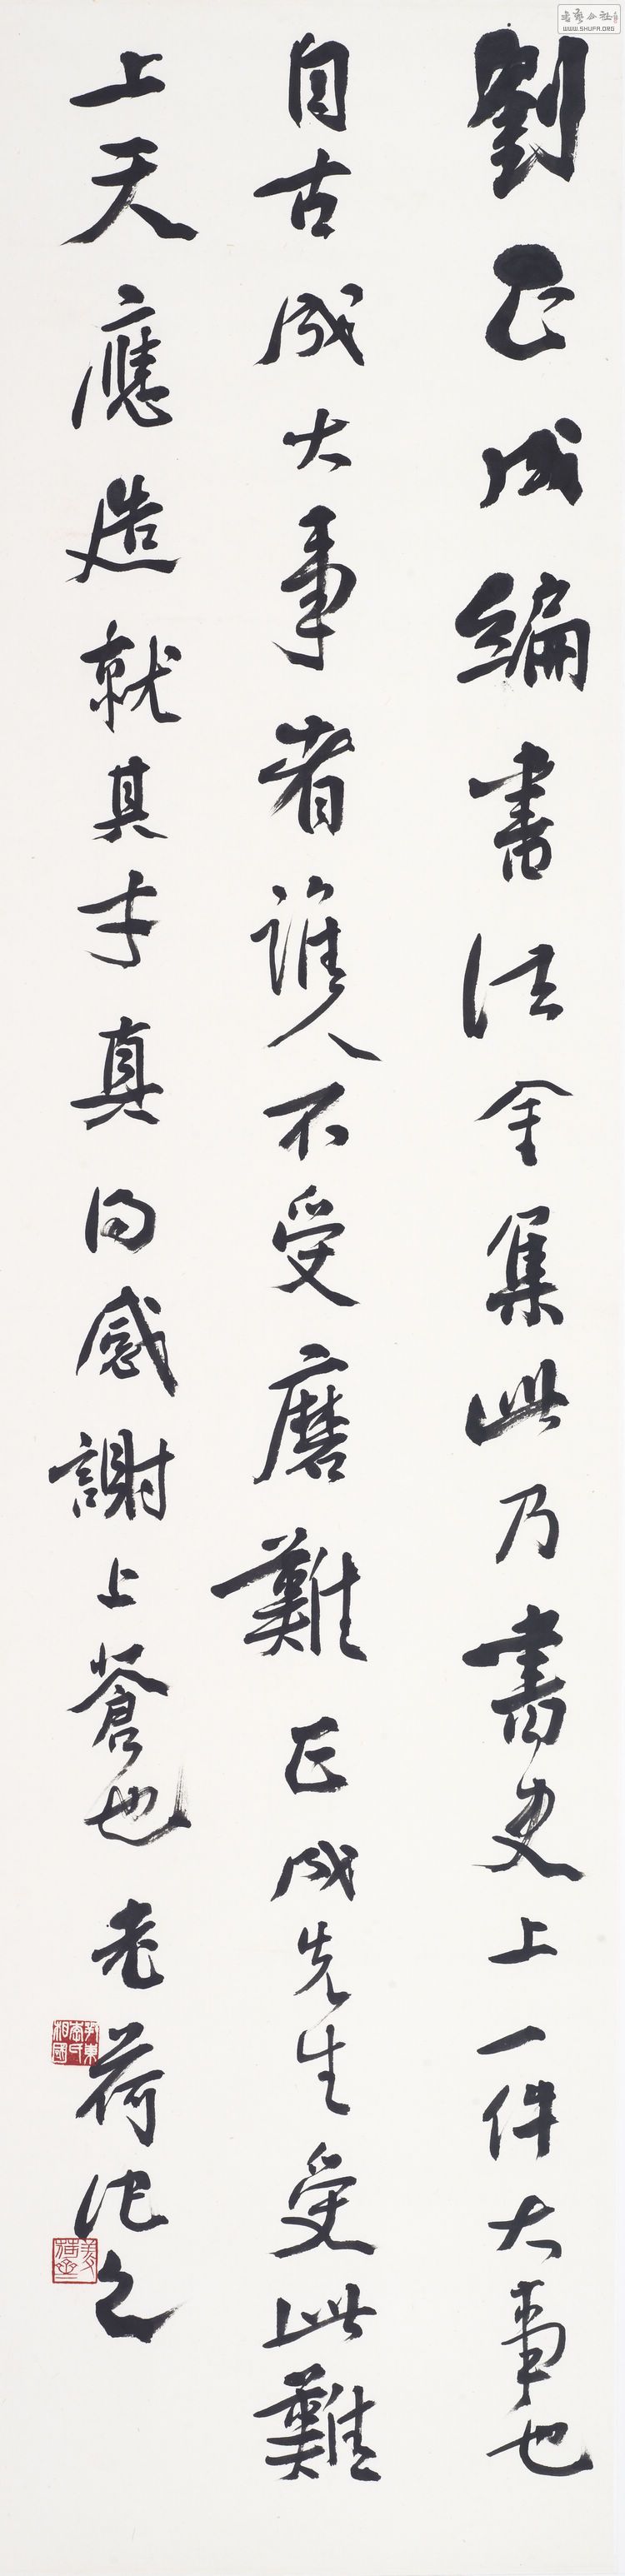 劉正成編書法全集此乃書史上一件大事也
自古成大事者誰人不受磨難正成先生受此難
上天應造就其才真得感謝上蒼也老荷記之
WWW.SHUFA.ORG